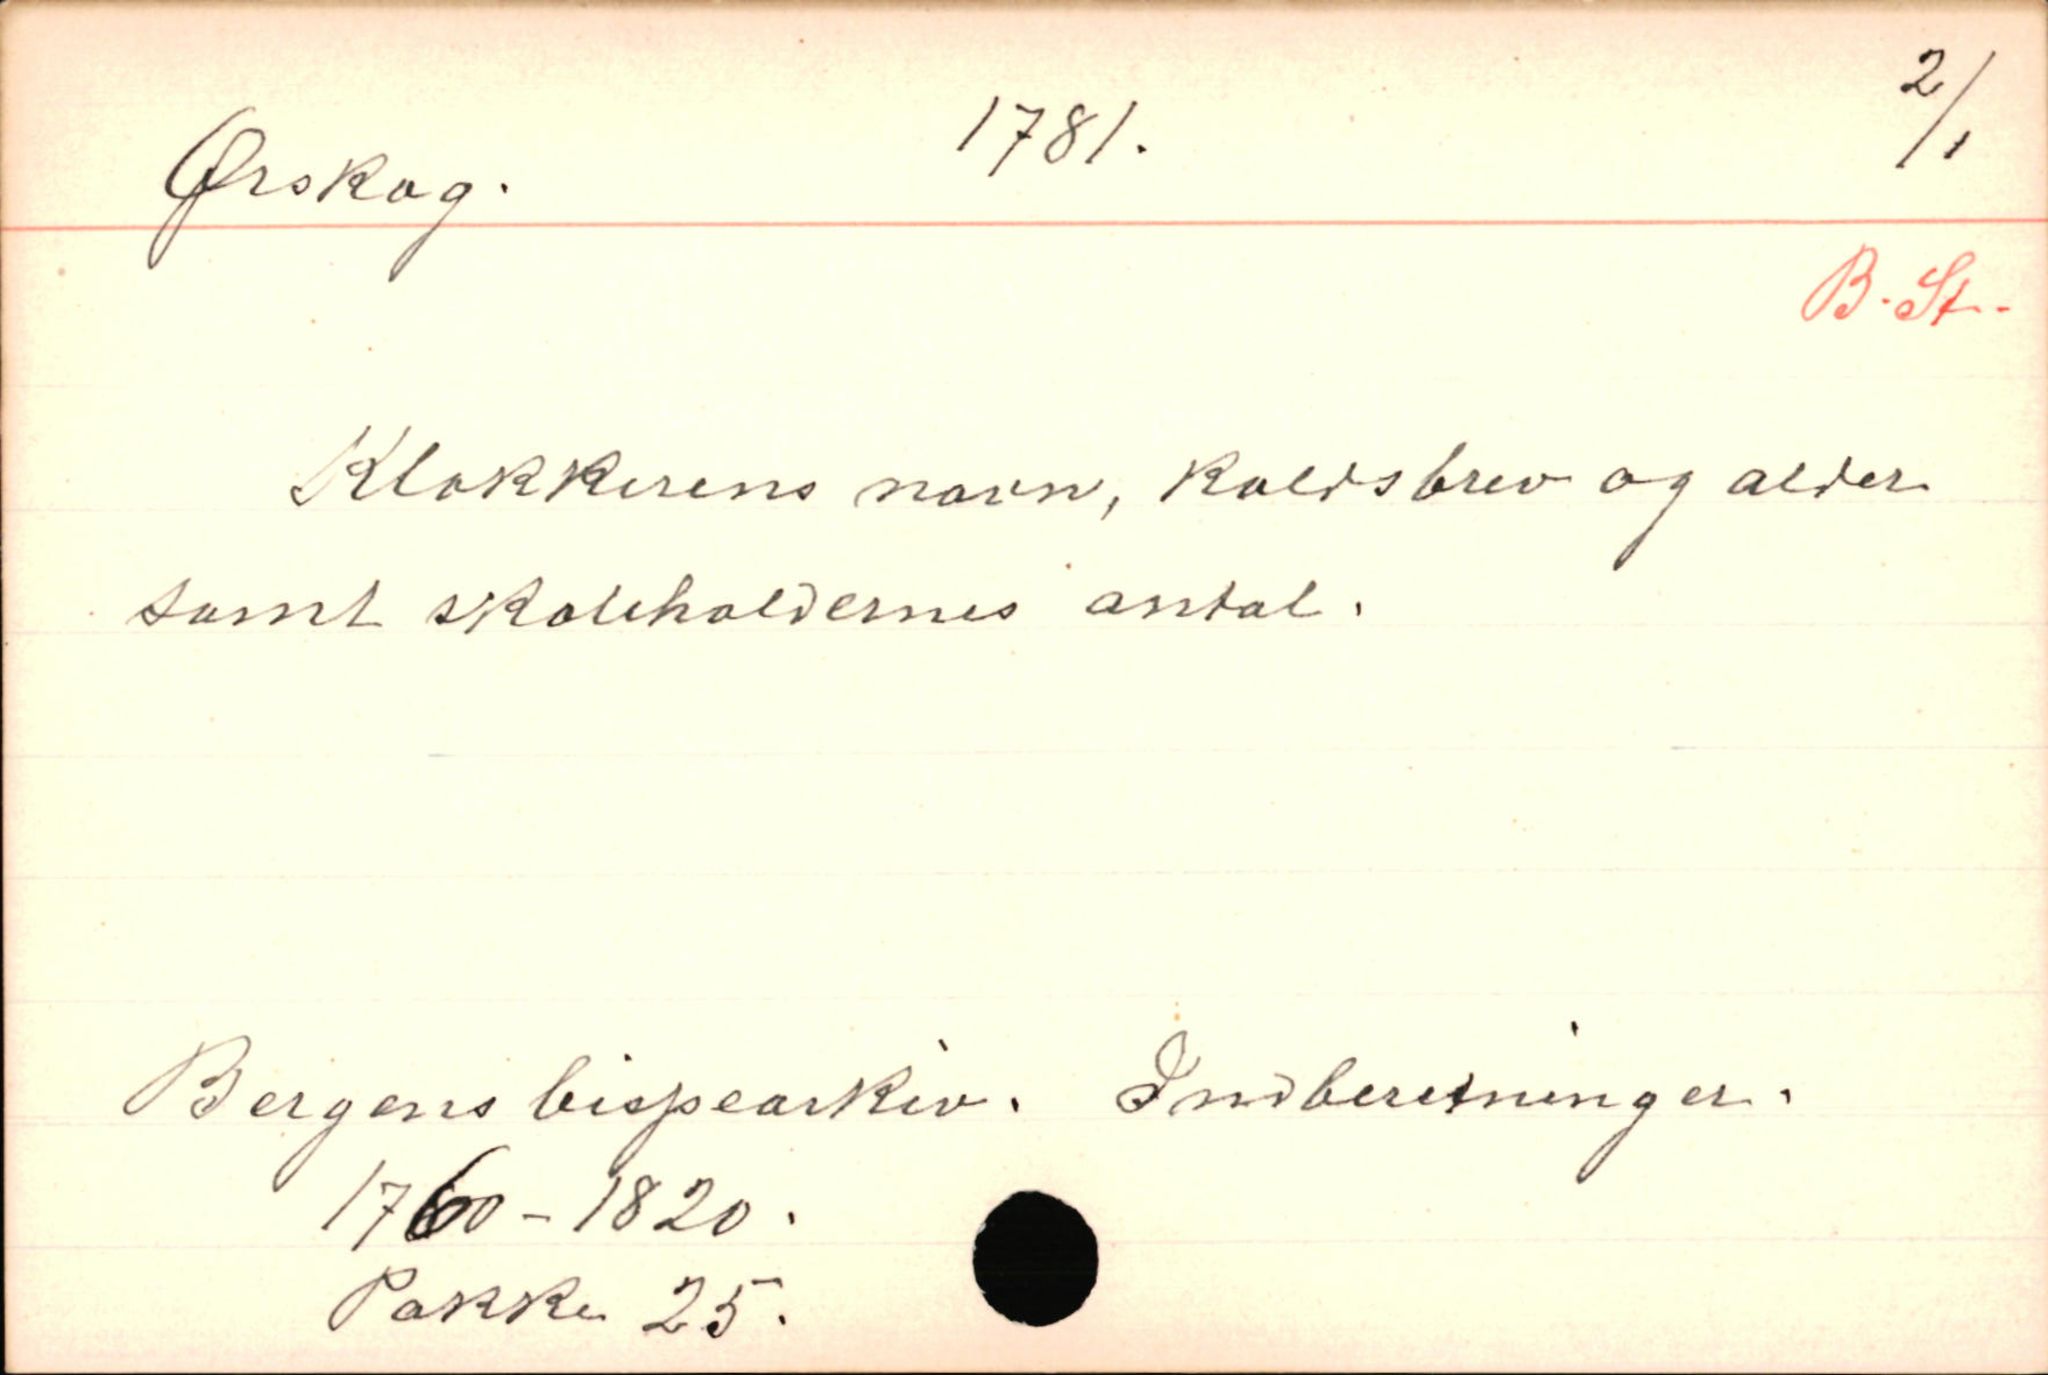 Ørskog. 1781. 2/1
B. St.
Klokkerens navn, kaldsbrev og alder
samt skoleholdernes antal.
Bergens bispearkiv. Indberetninger.
1760-1820.
Pakke 25.